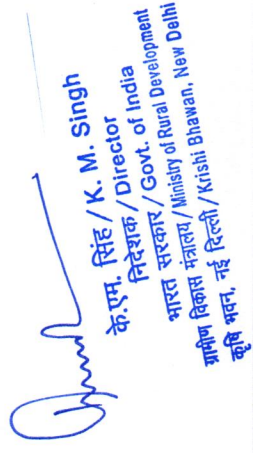 के.एम. सिंह / K. M. Singh
निदेशक / Director
भारत सरकार / Govt. of India
ग्रामीण विकास मंत्रालय / Ministry of Rural Development
कृषि भवन, नई दिल्ली / Krishi Bhawan, New Delhi